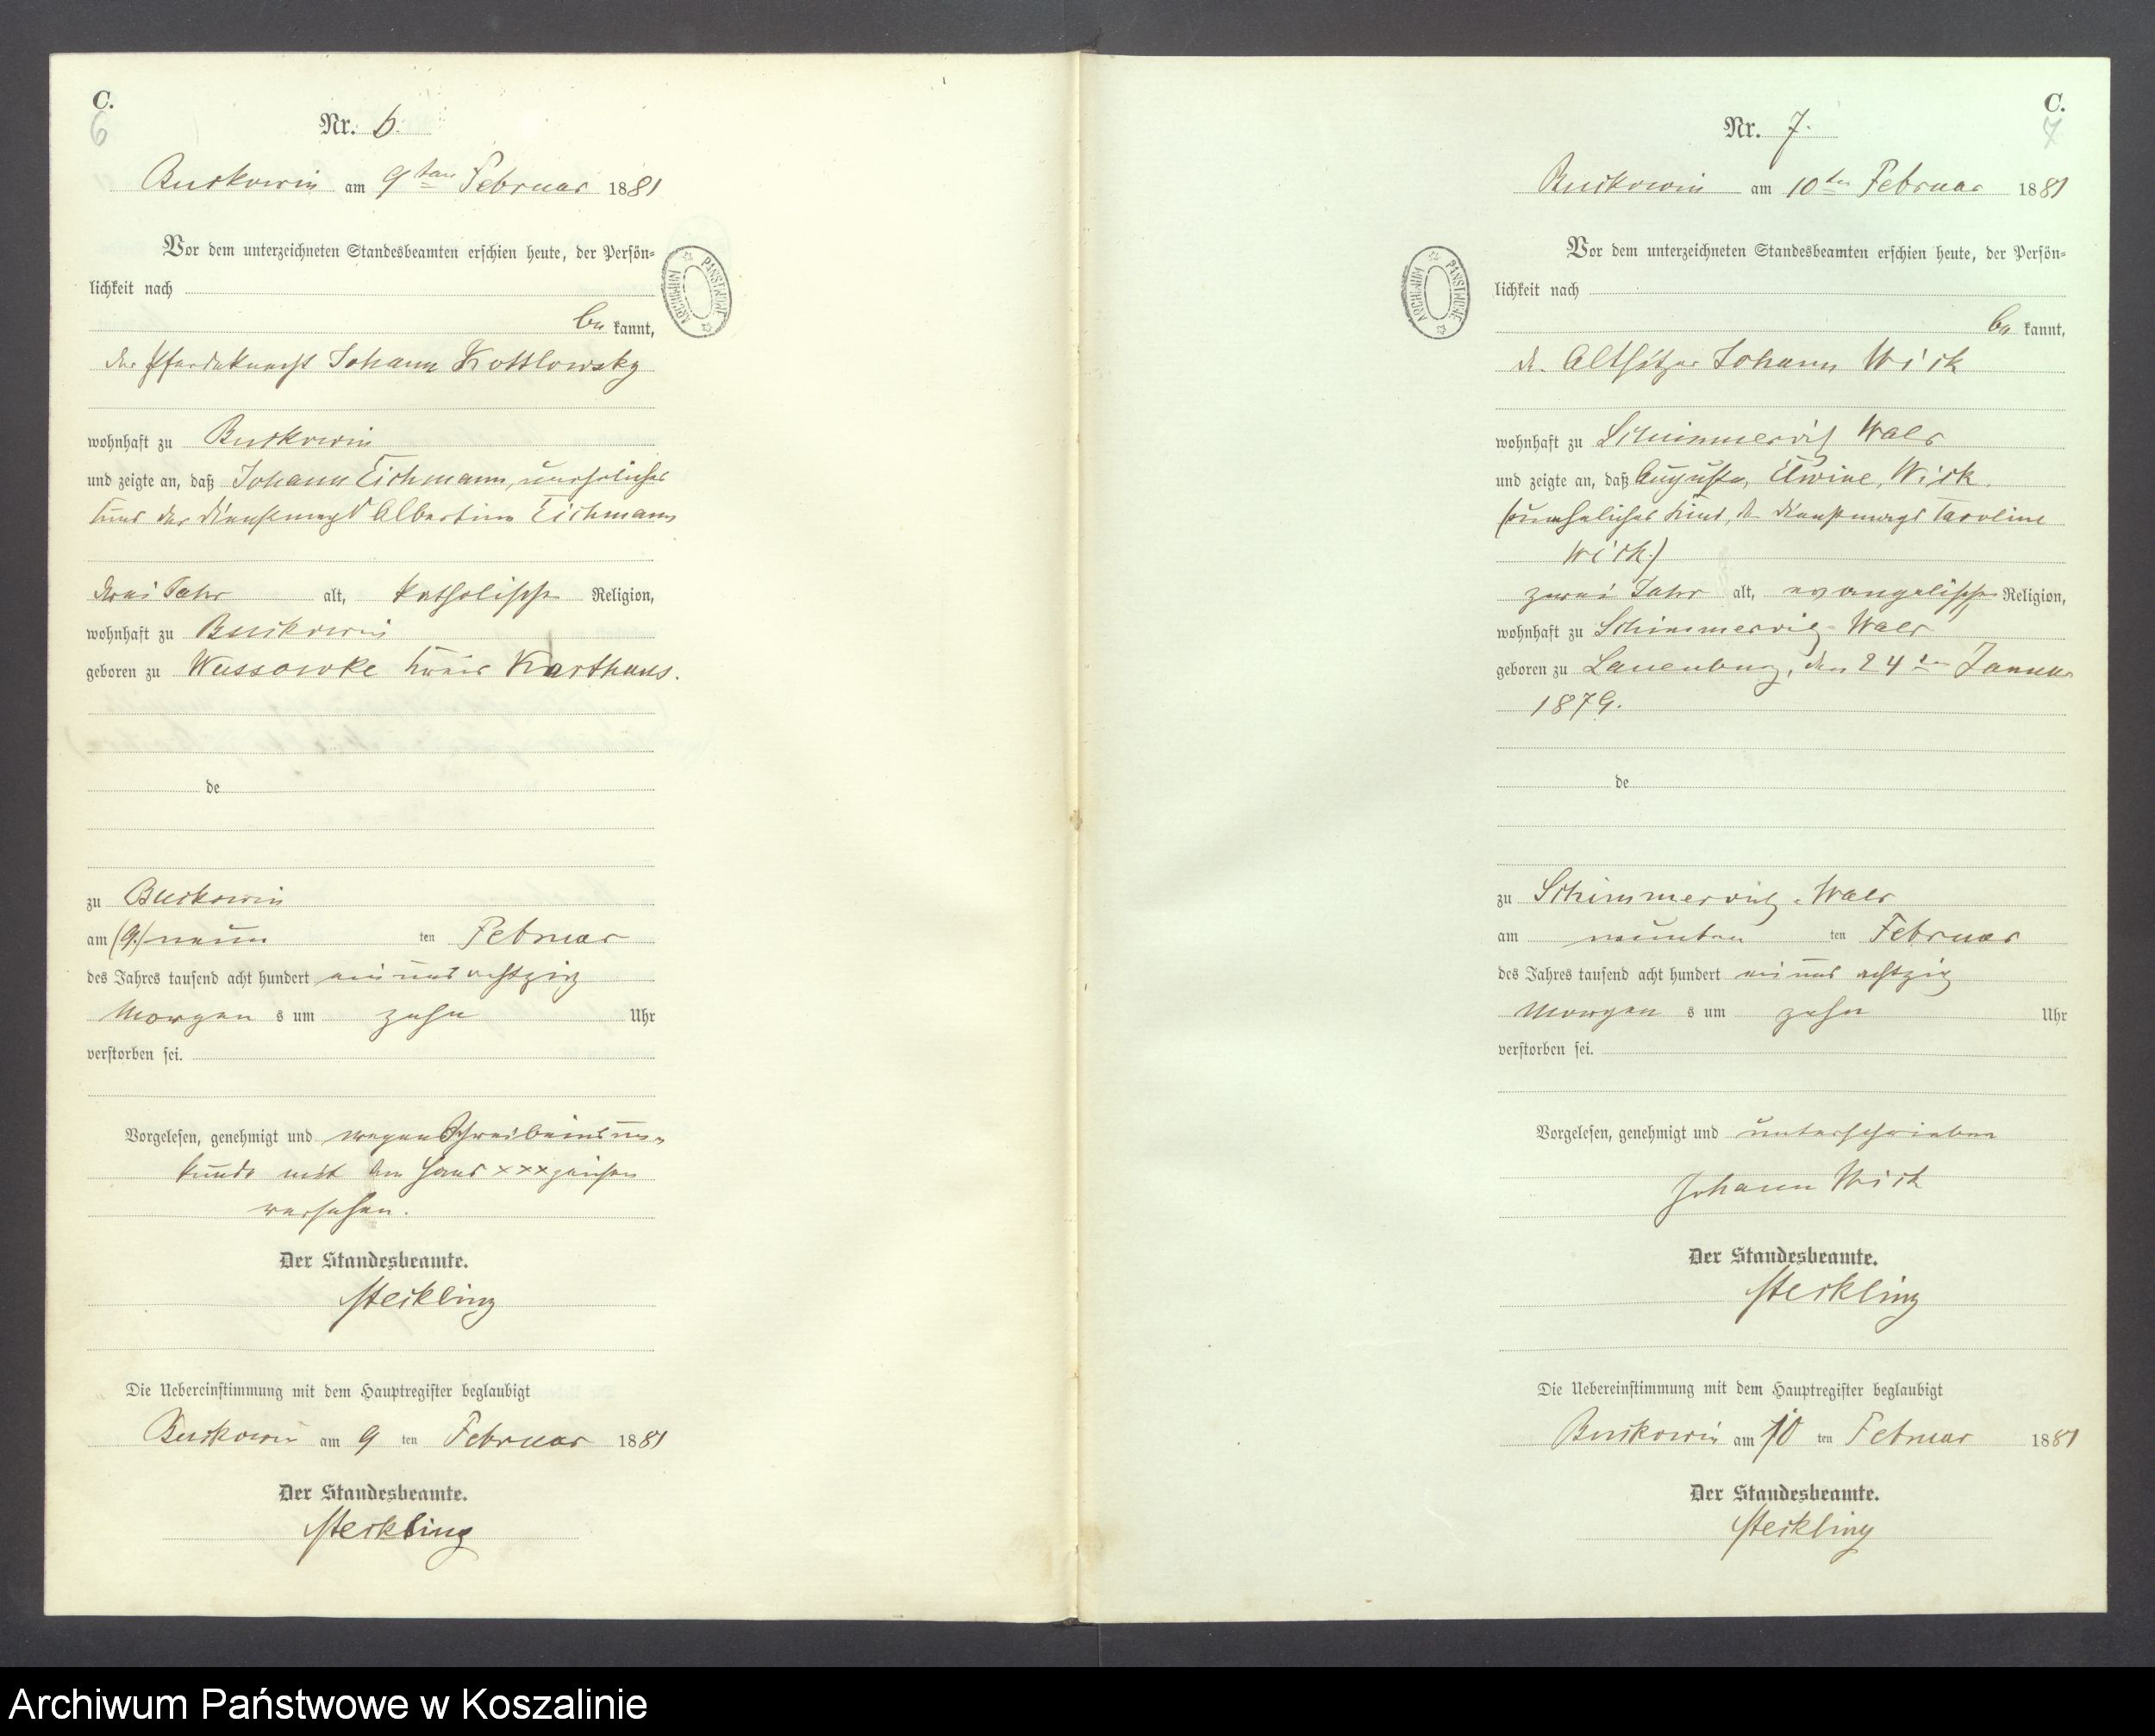 C.
6
Nr. 6.
Buckowin am 9ten Februar 1881
Vor dem unterzeichneten Standesbeamten erschien heute, der Persön=
lichkeit nach
be kannt,
der Pferdeknecht Johann Kottlowsky
wohnhaft zu Buckowin
und zeigte an, daß Johann Eichmann, uneheliches
Kind der Dienstmagd Albertine Eichmann
drei Jahr alt, katholischer Religion,
wohnhaft zu Buckowin
geboren zu Wussowke Kreis Karthaus.
de
zu Buckowin
am (9.) neun ten Februar
des Jahres tausend acht hundert ein und achtzig
Morgen s um zehn Uhr
verstorben sei.
Vorgelesen, genehmigt und wegen Schreibens un=
kunde mit dem Hand xxx zeichen
versehen.
Der Standesbeamte.
Steckling
Die Uebereinstimmung mit dem Hauptregister beglaubigt
Buckowin am 9 ten Februar 1881
Der Standesbeamte.
Steckling
ARCHIWUM PAŃSTWOWE
C.
7
Nr. 7.
Buckowin am 10ten Februar 1881
Vor dem unterzeichneten Standesbeamten erschien heute, der Persön=
lichkeit nach
be kannt,
der Altsitzer Johann Wick
wohnhaft zu Schimmerwitz Wald
und zeigte an, daß Auguste, Elwine, Wick.
(uneheliches Kind, der Dienstmagd Caroline
Wick.)
zwei Jahr alt, evangelischer Religion,
wohnhaft zu Schimmerwitz-Wald
geboren zu Lauenburg, den 24ten Januar
1879.
de
zu Schimmerwitz-Wald
am neunten ten Februar
des Jahres tausend acht hundert ein und achtzig
Morgen s um zehn Uhr
verstorben sei.
Vorgelesen, genehmigt und unterschrieben
Johann Wick
Der Standesbeamte.
Steckling
Die Uebereinstimmung mit dem Hauptregister beglaubigt
Buckowin am 10 ten Februar 1881
Der Standesbeamte.
Steckling
ARCHIWUM PAŃSTWOWE
Archiwum Państwowe w Koszalinie